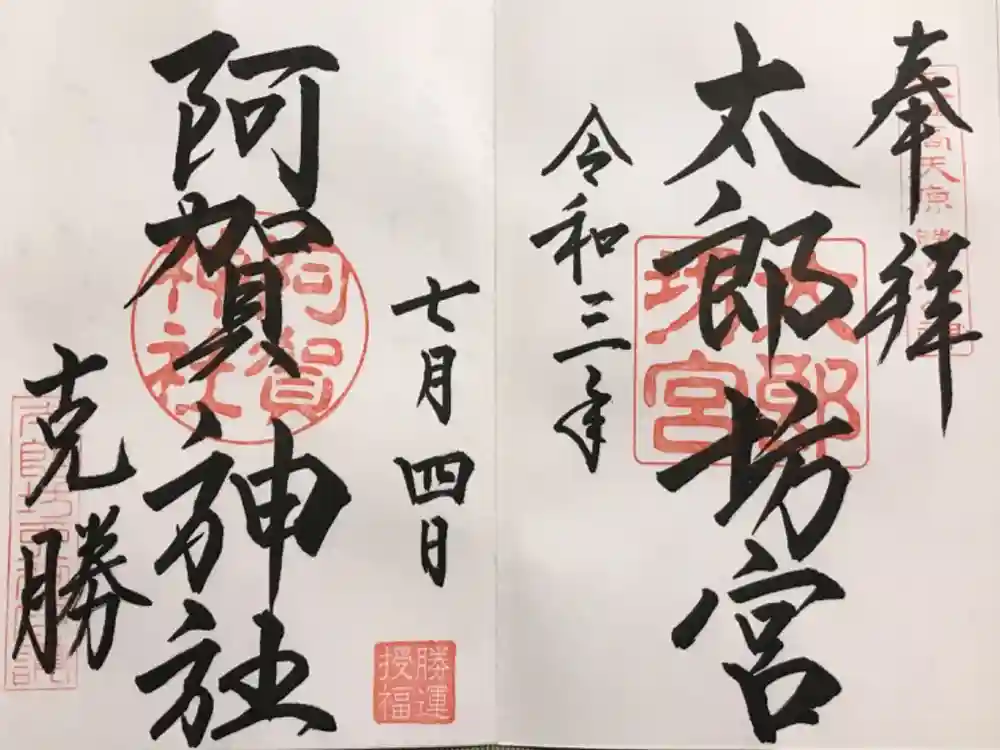 奉拝
太郎坊宮
太郎坊宮
令和三年
七月四日
阿賀神社
阿賀神社
克勝
勝運授福